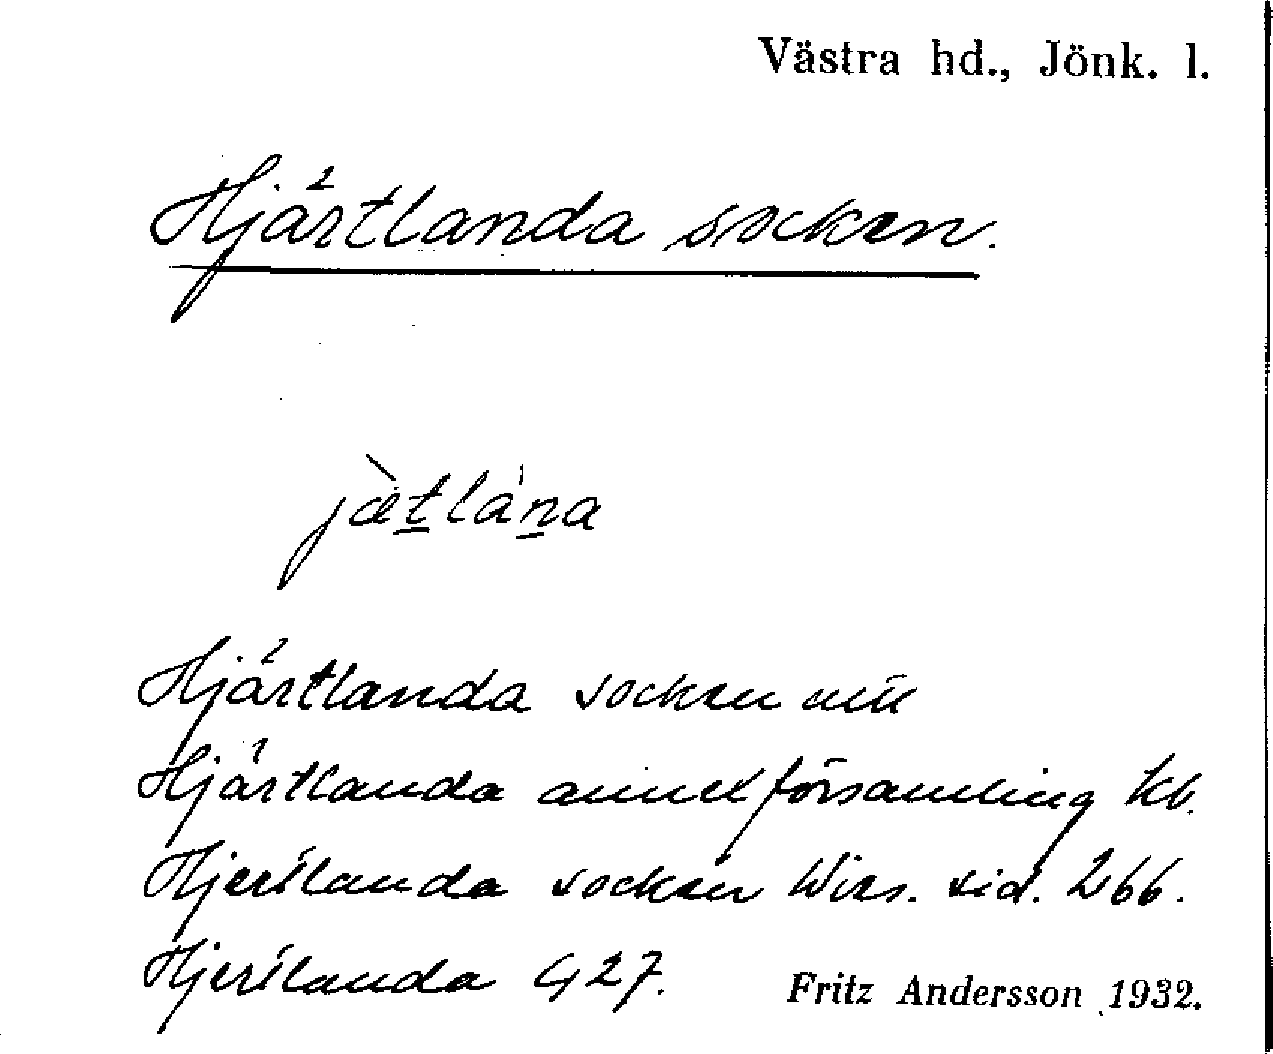 Västra hd., Jönk. l.
Hjärtlanda socken.
jæ̀tlána
Hjärtlanda socken
Hjärtlanda annexförsamling kb.
Hjertlanda socken Wies. sid. 266.
Hjertlanda G 27.
Fritz Andersson 1932.